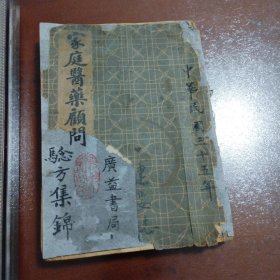 中華民國三十五年
家庭醫藥顧問
驗方集錦
廣益書局